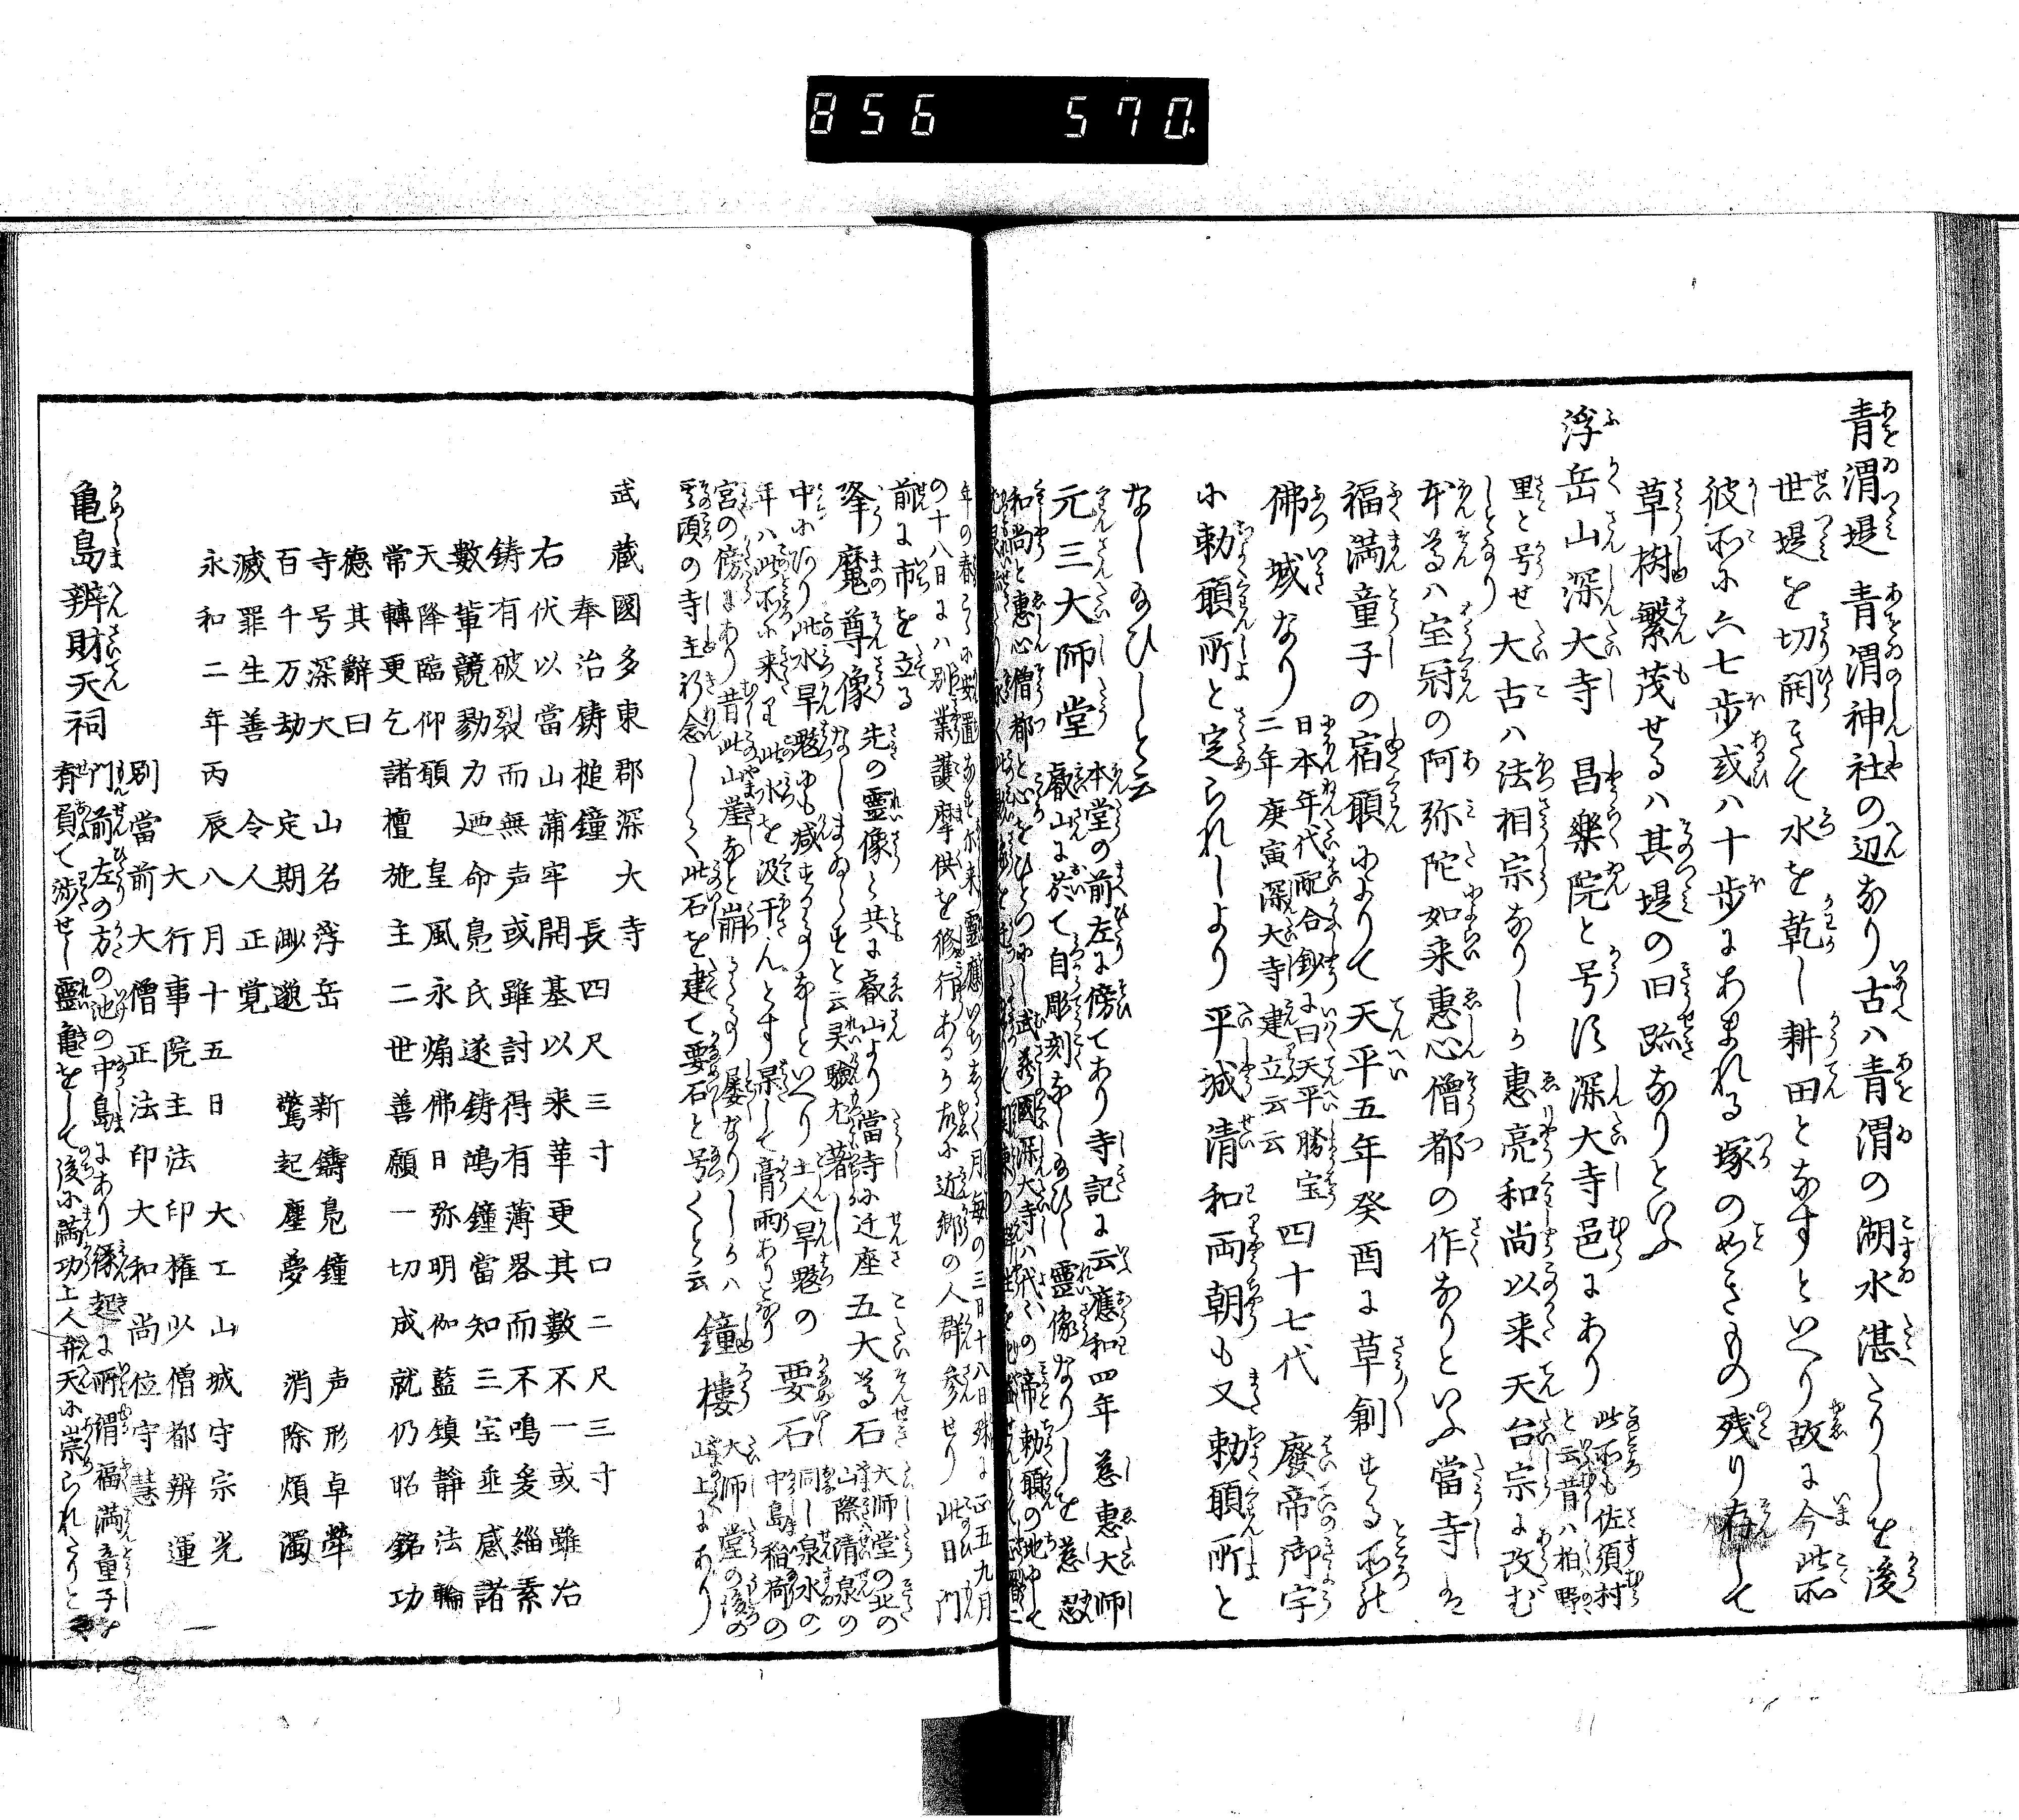 856 570
青渭堤 青渭神社の辺なり古ハ青渭の湖水湛たりしを後
世堤を切開きて水を乾し耕田となすといへり故に今此所
彼所に六七歩或ハ十歩にあまれる塚のごときもの残り存して
草樹繁茂せるハ其堤の旧跡なりといふ
浮岳山深大寺 昌樂院と号す深大寺邑にあり
此所も佐須村
と云昔ハ柏野
里と号せ
しとなり
大古ハ法相宗なりしか惠亮和尚以来天台宗に改む
本尊ハ宝冠の阿弥陀如来惠心僧都の作なりといふ當寺は
福満童子の宿願によりて天平五年癸酉に草創する所の
佛域なり
日本年代配合鈔に曰天平勝宝
二年庚寅深大寺建立云云
四十七代 廢帝御宇
に勅願所と定られしより 平城清和両朝も又勅願所と
なし給ひしと云
元三大師堂
本堂の前左に傍てあり寺記に云應和四年 慈惠大師
叡山に於て自彫刻なし給ひし靈像なりしを慈忍
和尚と惠心僧都と心をひとつにし武蔵國深大寺ハ代々の帝勅願の地にして
年の春こゝに安置なす尓来靈應いちしるく月毎の三日十八日殊に正五九月
の十八日にハ別業護摩供を修行ある故に近郷の人群参せり此日門
前に市を立る
降魔尊像
先の靈像と共に叡山より當寺に迁座
なしまゐらすと云灵驗尤著し
五大尊石
大師堂の北の
山際清泉の
中にあり此水旱魃にも减することなしといへり土人旱魃の
年ハ此所に来り此水を汲干んとす果して膏雨ありとなり
要石
同し泉水の
中島稲荷の
宮の傍にあり昔此山崖なと崩るゝ事屡なりしかハ
其頃の寺主祈念しく此石を建て要石と号くと云
鐘樓
大師堂の後の
山上にあり
武蔵國多東郡深大寺
奉冶鋳槌鐘 長四尺三寸 口二尺三寸
右伏以當山蒲牢開基以来華更其數不一或雖冶
鋳有破裂而無声或雖討得有薄畧而不鳴爰緇素
數輩競勠力廼命鳬氏遂鋳鴻鐘當知三宝垂感諸
天降臨仰願 皇風永煽佛日弥明伽藍鎮静法輪
常轉更乞諸檀施主二世善願一切成就仍昭銘功
德其辭曰
寺号深大 山名浮岳 新鑄鳬鐘 声形卓犖
百千万劫 定期渺邈 驚起塵夢 消除煩濁
滅罪生善 令人正覚
永和二年丙辰八月十五日 大工山城守宗光
大行事院主法印権少僧都辨運
別當前大僧正法印大和尚位守慧
亀島辨財天祠
門前左の方の池の中島にあり縁起に所謂福満童子を
脊負て游せし靈亀をして後に満功上人弁天に崇られたりと